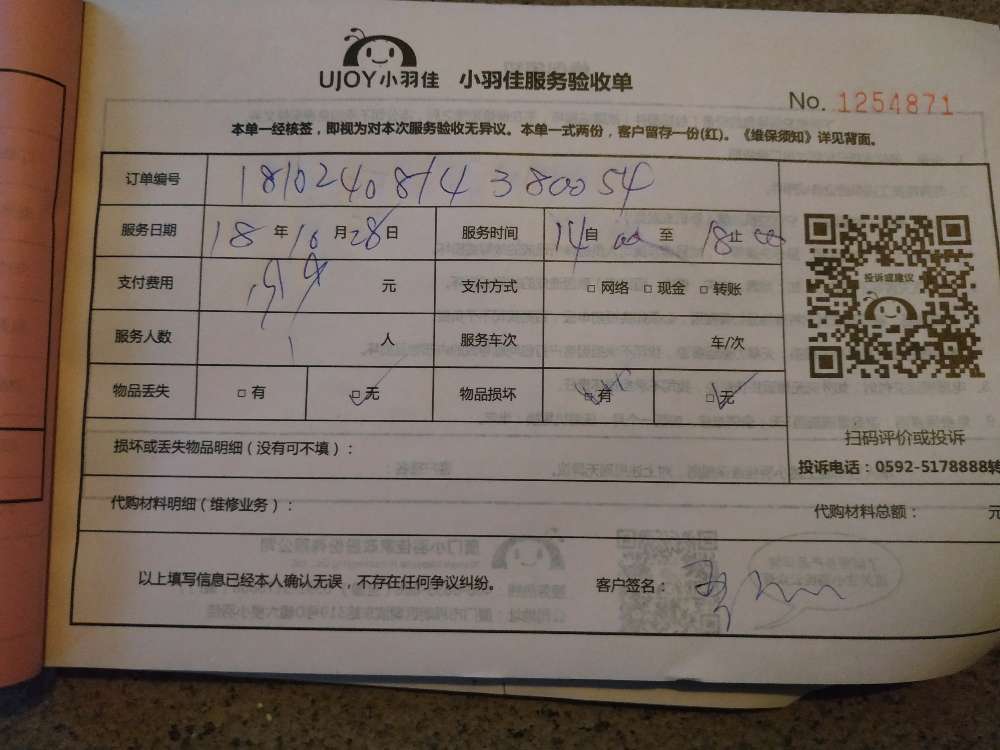 UJOY小羽佳 小羽佳服务验收单
No. 1254871
本单一经核签，即视为对本次服务验收无异议。本单一式两份，客户留存一份(红)。《维保须知》详见背面。
订单编号 181024081438 0054
服务日期 18 年 10 月 28 日 服务时间 14 自 00 至 18 止 00
支付费用 元 支付方式 □ 网络 □ 现金 □ 转账
服务人数 1 人 服务车次 车/次
物品丢失 □ 有 □ 无 物品损坏 □ 有 □ 无
投诉或建议
扫码评价或投诉
投诉电话：0592-5178888转
损坏或丢失物品明细（没有可不填）：
代购材料明细（维修业务）： 代购材料总额： 元
以上填写信息已经本人确认无误，不存在任何争议纠纷。 客户签名：